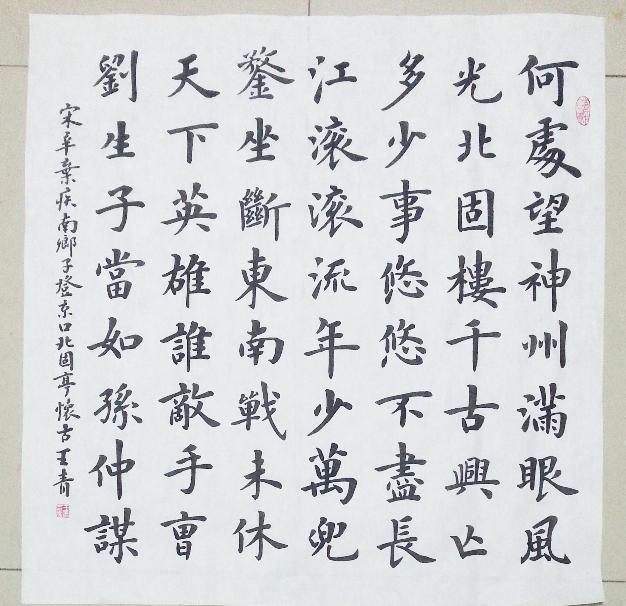 何處望神州滿眼風
光北固樓千古興亡
多少事悠悠不盡長
江滚滚流年少萬兜
鍪坐斷東南戰未休
天下英雄誰敵手曹
劉生子當如孫仲謀
宋辛棄疾南鄉子登京口北固亭懷古王青